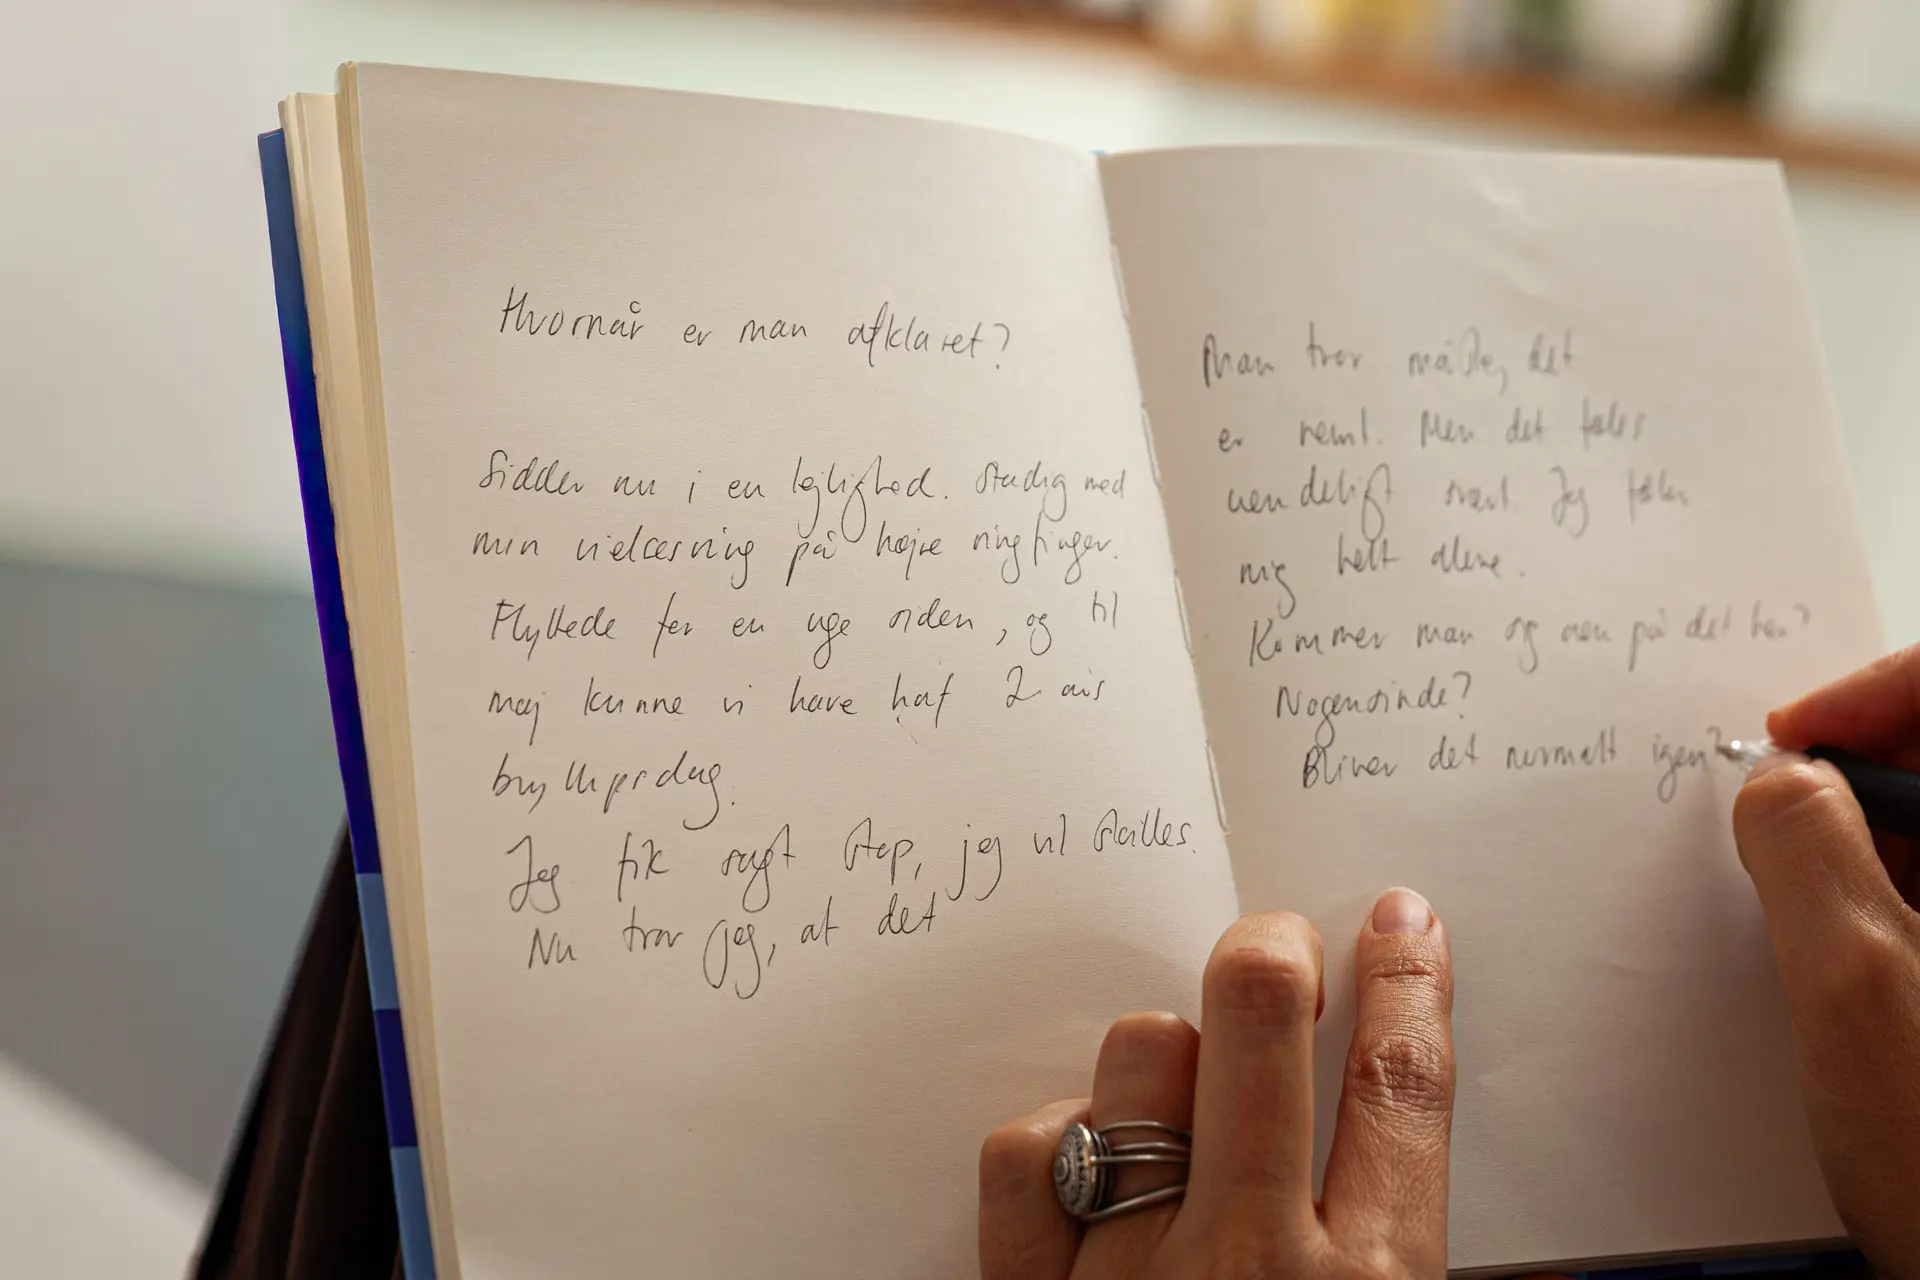 Hvornår er man afklaret?
Sidder nu i en lejlighed. Stadig med
min vielsesring på højre ringfinger.
Flyttede for en uge siden, og til
maj kunne vi have haft 2 års
bryllupsdag.
Jeg fik sagt stop, jeg vil skilles.
Nu tror jeg, at det
Man tror måske, det
er nemt. Men det føles
uendeligt svært. Jeg føler
mig helt alene.
Kommer man sig oven på det her?
Nogensinde?
Bliver det normalt igen?